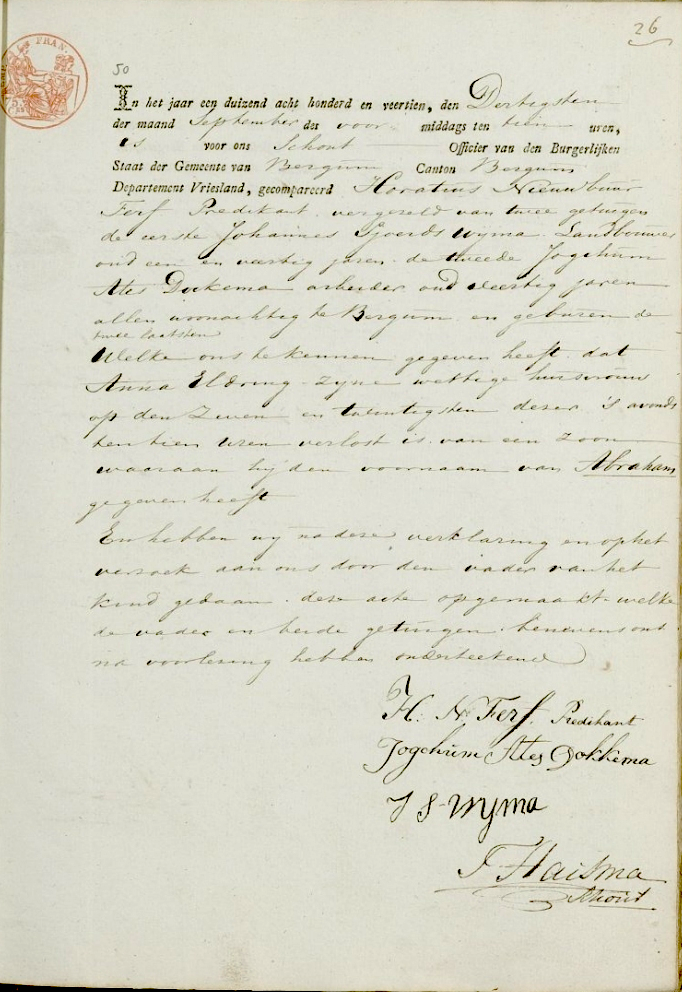 26
FRAN.
50
In het jaar een duizend acht honderd en veertien, den Dertigsten
der maand September des voor middags ten tien uren,
is voor ons Schout Officier van den Burgerlijken
Staat der Gemeente van Bergum Canton Bergum
Departement Vriesland, gecompareerd Horatius Nieuwbuur
Ferf Predikant vergezeld van twee getuigen
de eerste Johannes Sjoerds Wyma Landbouwer
oud een en veertig jaren de tweede Jogchum
Ates Dokema arbeider oud veertig jaren
allen woonachtig te Bergum en geburen de
twee laatsten
Welke ons te kennen gegeven heeft dat
Anna Eldring zyne wettige huisvrouw
op den Zeven en twintigsten dezer 's avonds
ten tien uren verlost is van een zoon
waaraan hij den voornaam van Abraham
gegeven heeft
En hebben wy na deze verklaring en op het
verzoek aan ons door den vader van het
kind gedaan deze acte opgemaakt welke
de vader en beide getuigen benevens ons
na voorlezing hebben onderteekend
H: N: Ferf. Predikant
Jogchum Ates Dokkema
J S Wyma
Haisma
Schout